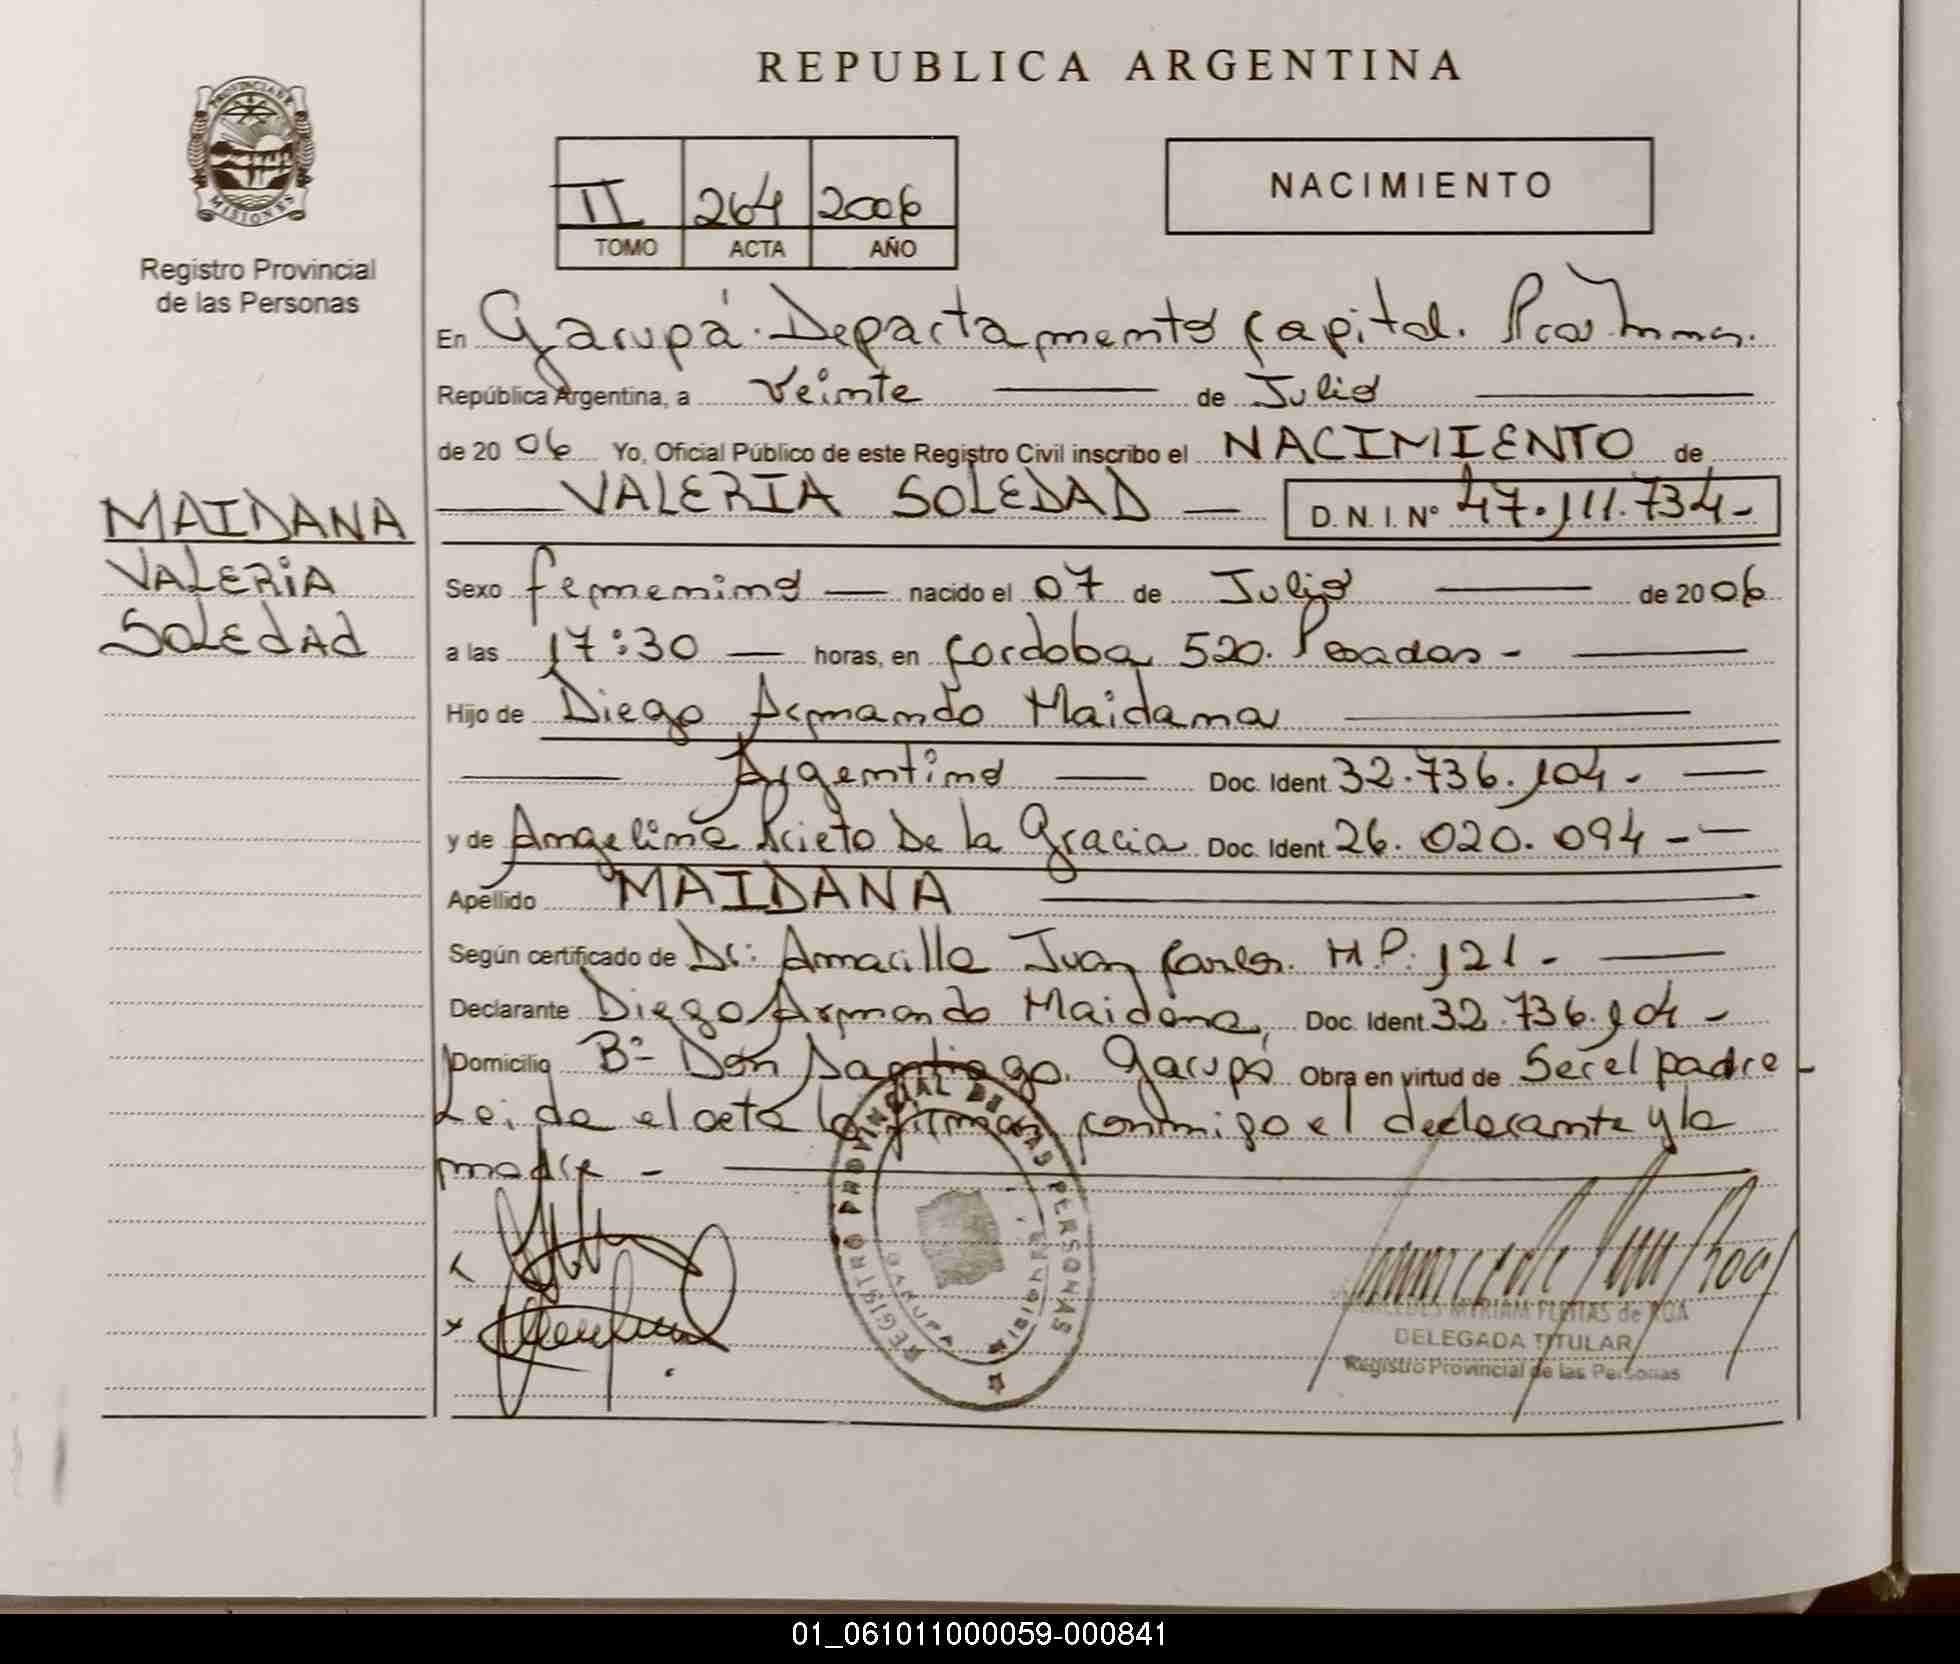 REPUBLICA ARGENTINA
PROVINCIA DE MISIONES
Registro Provincial
de las Personas
II 264 2006
TOMO ACTA AÑO
NACIMIENTO
En Garupá. Departamento Capital.
República Argentina, a Veinte de Julio
de 2006 Yo, Oficial Público de este Registro Civil inscribo el NACIMIENTO de
VALERIA SOLEDAD D.N.I. Nº 47.111.734-
MAIDANA
VALERIA
SOLEDAD
Sexo femenino nacido el 07 de Julio de 2006
a las 17:30 horas, en Cordoba 520. Posadas-
Hijo de Diego Armando Maidana
Argentino Doc. Ident. 32.736.104.
y de Angelina Prieto De la Gracia Doc. Ident. 26.020.094-
Apellido MAIDANA
Según certificado de Dr: Amarilla Juan Carlos. M.P: 121.
Declarante Diego Armando Maidana, Doc. Ident. 32.736.104-
Domicilio Bº Don Santiago. Garupá Obra en virtud de Ser el padre-
Leida el acta la firman conmigo el declarante y la
madre-
REGISTRO PROVINCIAL DE LAS PERSONAS
GARUPA MISIONES
MERCEDES MYRIAM FLEITAS de ROA
DELEGADA TITULAR
Registro Provincial de las Personas
01_061011000059-000841